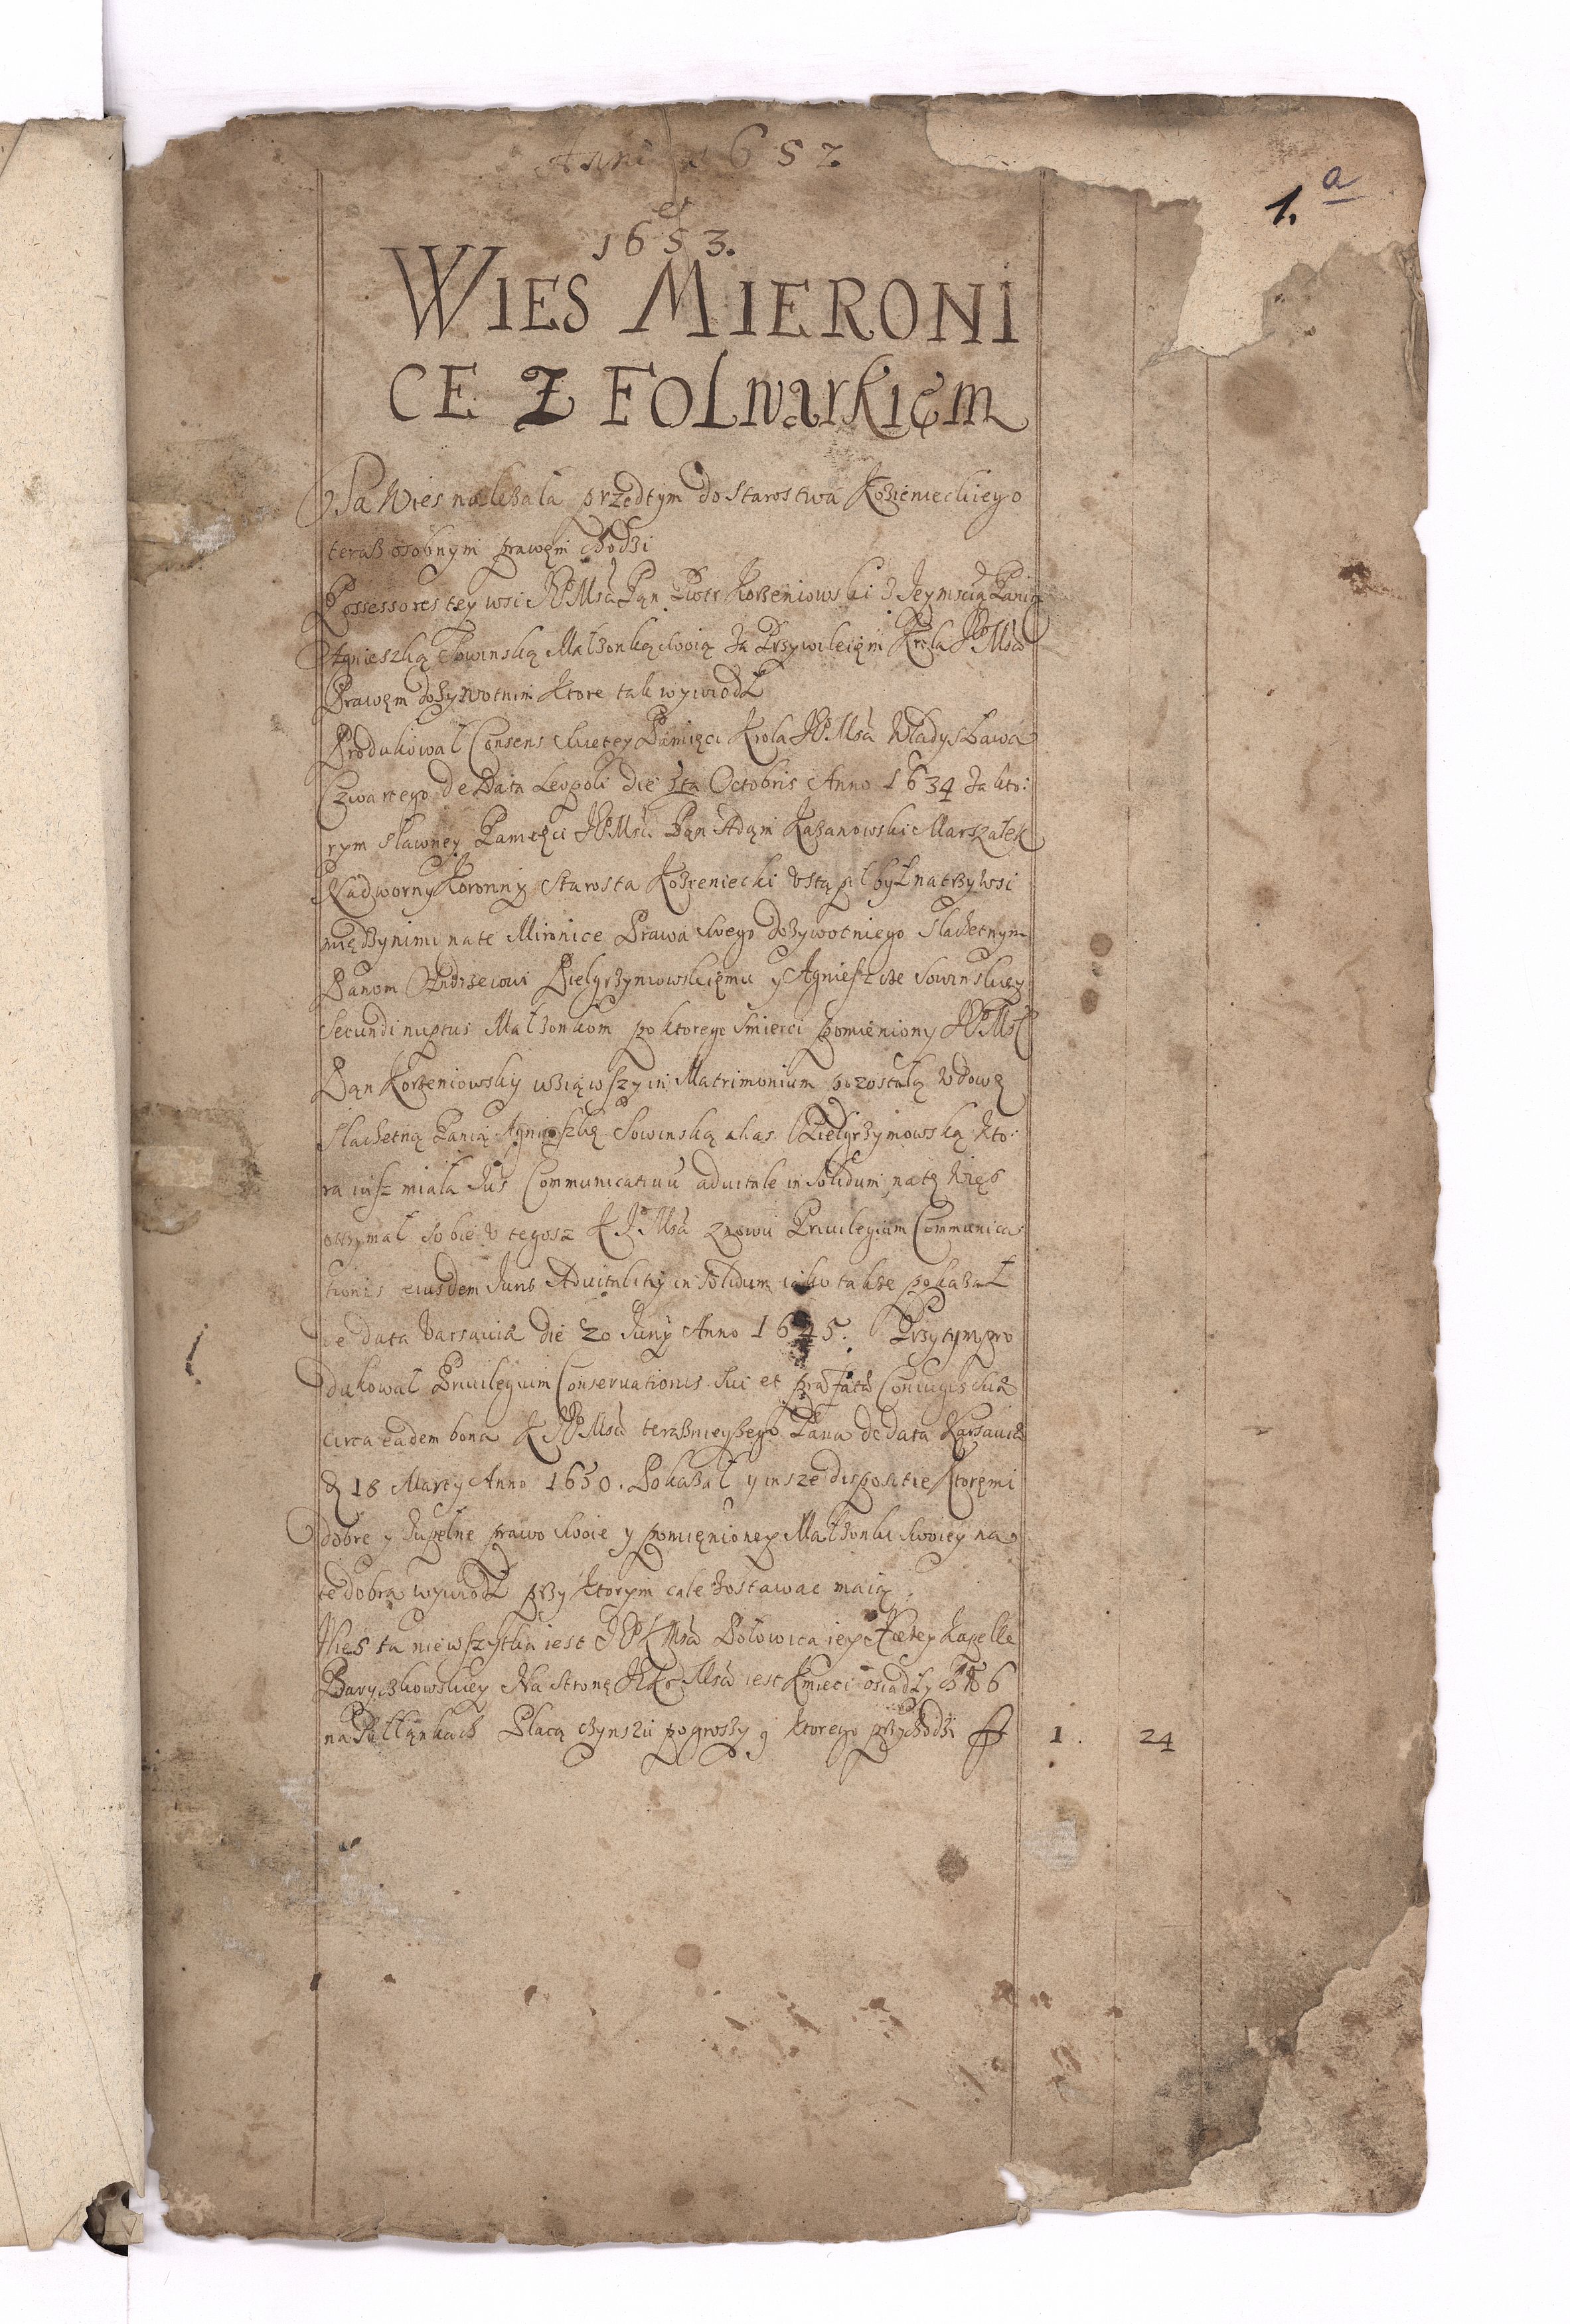 Anni 1652
et
1653.
1. a
WIES MIERONI
CE Z FOLwarkięm
Ta Wies nalezała przedtym do Starostwa Kozienieckiego
teraz osobnym prawęm chodzi
Possessores tey wsi JEMsć Pąn Piotr Korzeniowski z Jeymscią Panią
Agnieszką Sowinską Małzonką swoią za Przywileięm Krola JEMsci
Prawęm dozywotnim ktore tak wywiodł
Produkował Consens Swietey Pamięci Krola JEMsci Władysława
Czwartego de Data Leopoli die Octobris Anno 1634 Za kto:
rym sławney Pamięci JEMsć Pąn Adąm Kazanowski Marszałek
Nadworny Koronny Starosta Kozieniecki Ustąpił był na trzy wsi
między nimi na te Mironice Prawa Swego dozywotniego Slachetnym
Panom Andrzeiowi Pielgrzymowskięmu y Agnieszce Sowinskiey
Secundi nuptus Małzonkom po ktorego smierci pomieniony JEMsć
Pąn Korzeniowsky wziąwszy in Matrimonium pozostałą Wdowę
Slachetną Panią Agnieszkę Sowinską alias Pielgrzymowską kto:
ra iusz miała Jus Communicatiuu aduitale in Solidum na tę Wieś
otrzymał Sobie U tegosz K J Msci znowu Priuilegium Communica
tionis eiusdem Juris Aduitalitij in Solidum iako takze pokazał
de data Varsauiæ die 20 Junij Anno 1645. Przytym pro
dukował Priuilegium Conseruationis Sui et præfatæ Coniugis Suæ
circa eadem bona K JEMsci teraznieyszego Pana de data Varsauiæ
d 18 Marty Anno 1650. Pokazał y insze dispositie ktoręmi
dobre y Zupełne prawo Swoie y pomięnioney Małzonki Swoiey na
te dobra wywiodł przy ktorym cale Zostawac maią.
Wies ta niewszytka iest JEKMsci Połowica iey Kapelle
Baryczkowskiey Na Stronę JKMsci iest Kmieci osiadły 6
na Pułłąnkach Płacą czynszu po groszy 9 ktorego przychodzi ff 1. 24